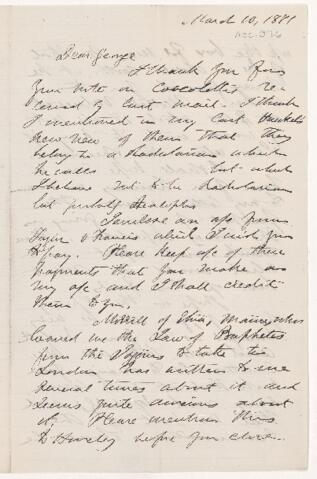 March 10, 1881
Dear George
I thank you for
your note on Coccoliths re-
ceived by last mail. I think
I mentioned in my last Haeckel's
new view of them that they
belong to a Radiolarian which
he calls but which
I believe not to be Radiolarian
but
I enclose an a/c from
Taylor & Francis which I wish you
to pay. Please keep a/c of these
payments that you make on
my a/c and I shall credit
them to you.
Morrill of Maine, who
loaned me the Jaw of
from the to take to
London has written to me
several times about it and
seems quite anxious about
it. Please mention this
to Huxley before you close.